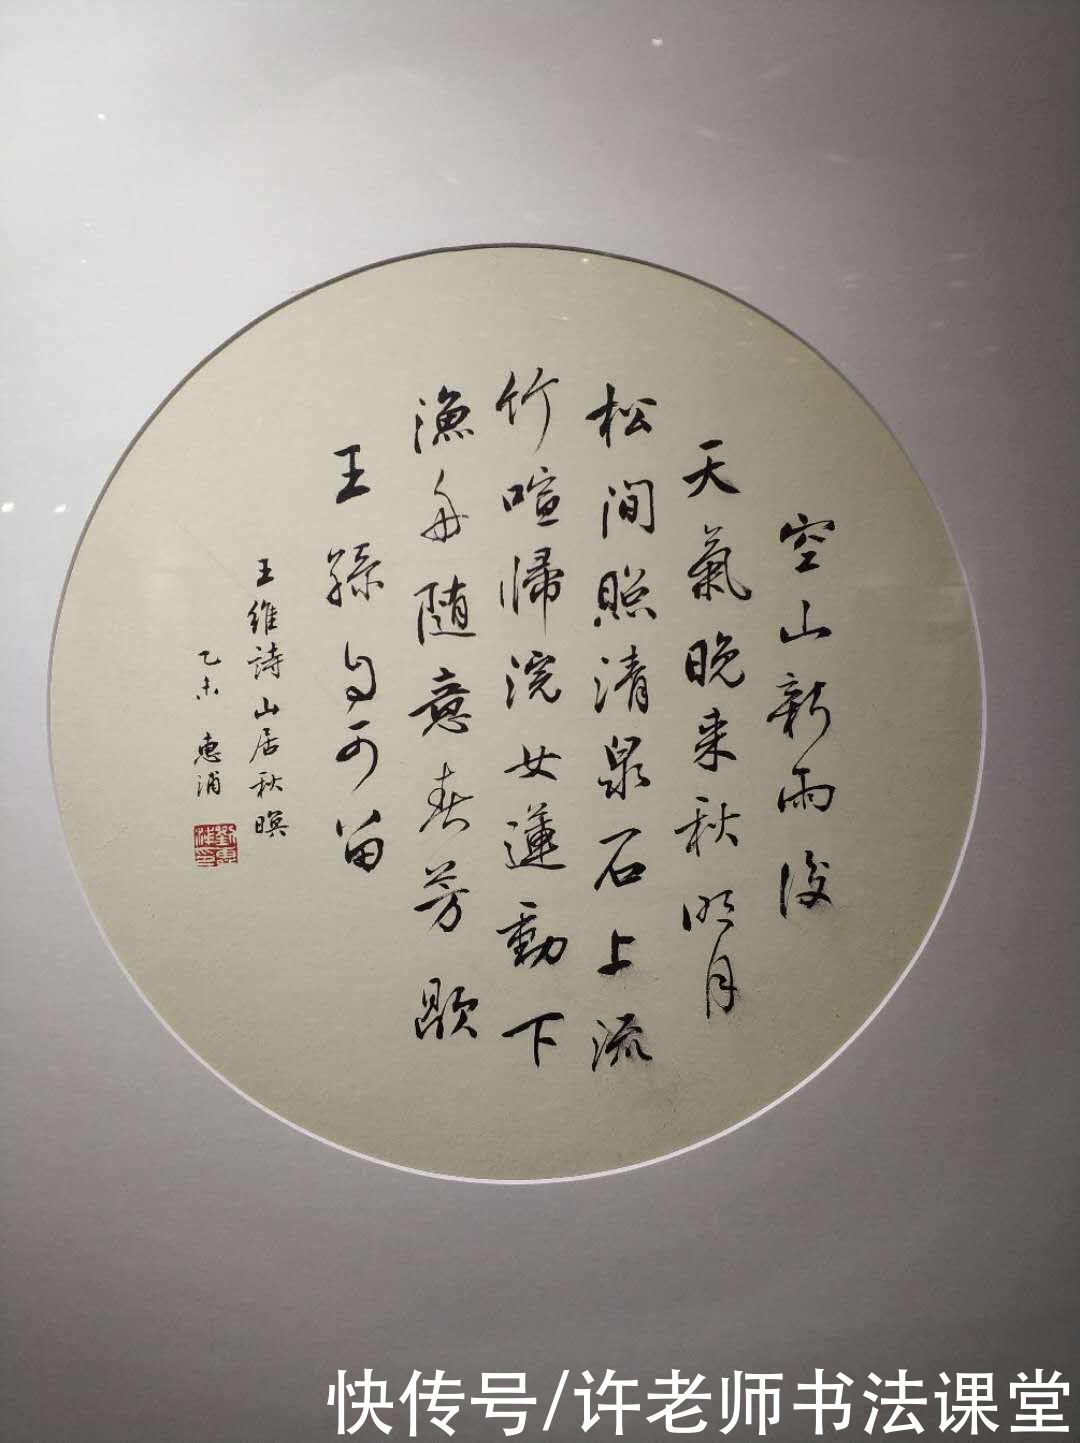 空山新雨後
天氣晚来秋明月
松間照清泉石上流
竹喧歸浣女蓮動下
漁舟随意春芳歇
王孫自可留
王維詩山居秋暝
乙未 惠浦
劉惠浦印
快传号/许老师书法课堂